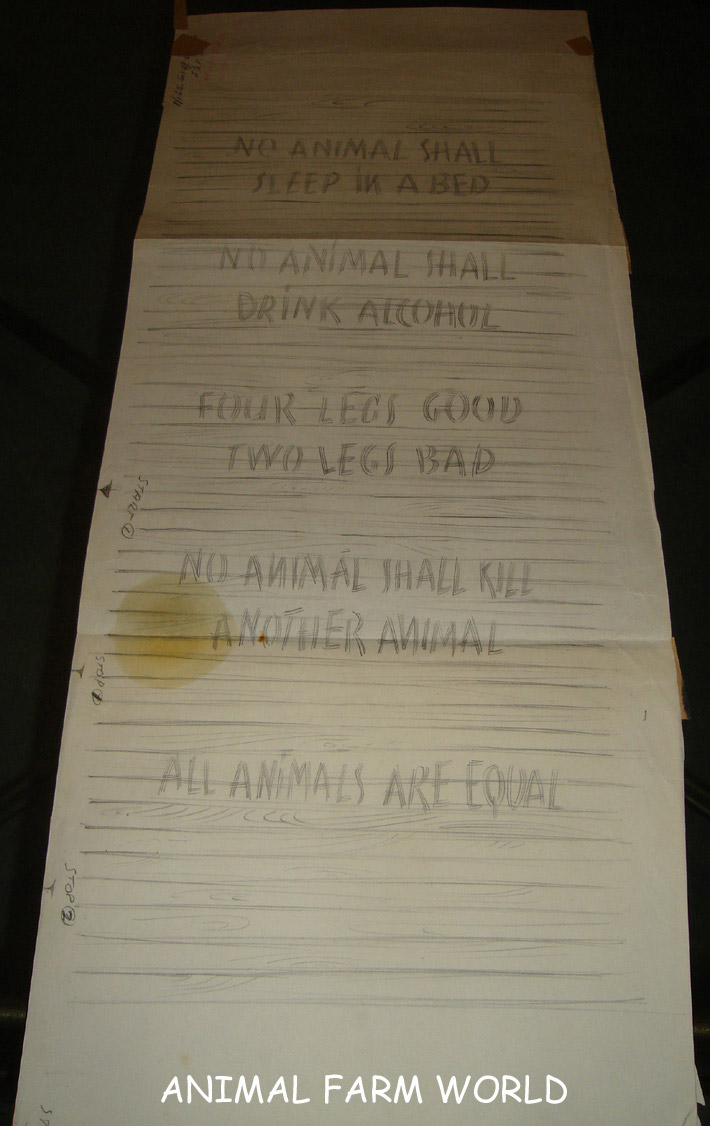 NO ANIMAL SHALL
SLEEP IN A BED
NO ANIMAL SHALL
DRINK ALCOHOL
FOUR LEGS GOOD
TWO LEGS BAD
START ①
NO ANIMAL SHALL KILL
ANOTHER ANIMAL
STOP ①
ALL ANIMALS ARE EQUAL
STOP ②
ANIMAL FARM WORLD